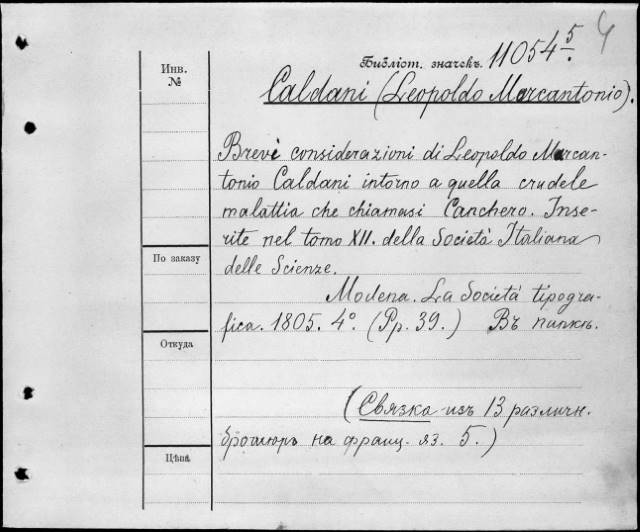 Библіот. значекъ. 11054 5.
Инв.
№
Caldani (Leopoldo Marcantonio).
Brevi considerazioni di Leopoldo Marcan-
tonio Caldani intorno a quella crudele
malattia che chiamasi Canchero. Inse-
rite nel tomo XII. della Società Italiana
delle Scienze.
По заказу
Modena. La Società tipogra-
fica. 1805. 4º. (Pp. 39.) Въ папкѣ.
Откуда
(Связка изъ 13 различн.
брошюръ на франц. яз. 5.)
Цѣна